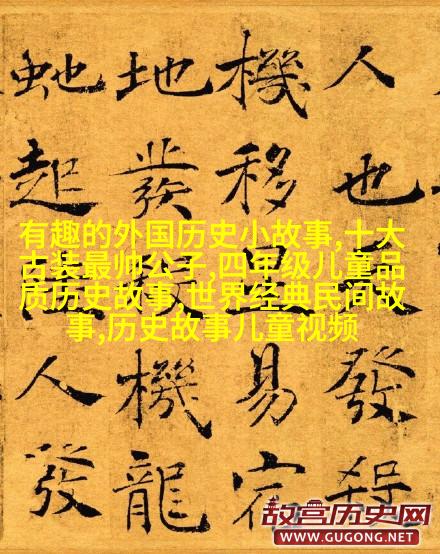 人也發殺
機移易宿
地發機龍
虵起人發
有趣的外国历史小故事,十大
古装最帅公子,四年级儿童品
质历史故事,世界经典民间故
事,历史故事儿童视频
故宫历史网
WWW.GUGONG.NET